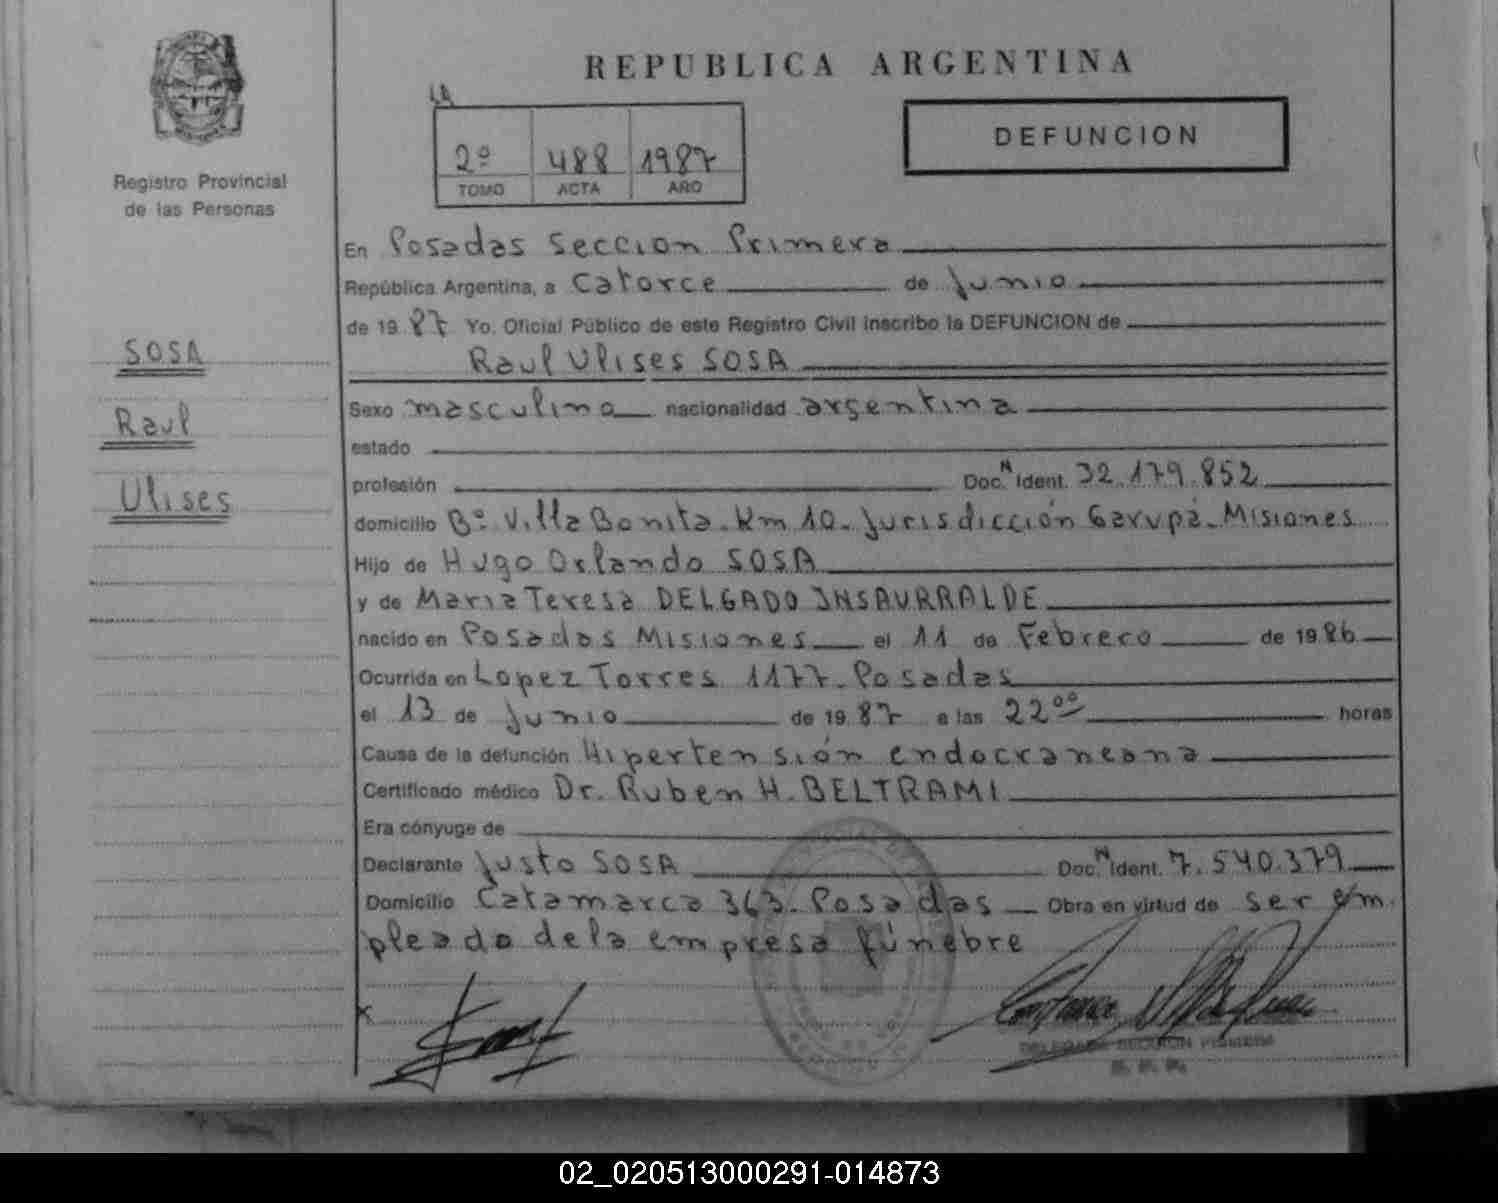 REPUBLICA ARGENTINA
LA
2º 488 1987
TOMO ACTA AÑO
DEFUNCION
Registro Provincial
de las Personas
SOSA
Raul
Ulises
En Posadas Seccion Primera
República Argentina, a Catorce de Junio
de 1987 Yo, Oficial Público de este Registro Civil inscribo la DEFUNCION de
Raul Ulises SOSA
Sexo masculino nacionalidad argentina
estado
profesión Doc. N Ident. 32.179.852
domicilio Bº Villa Bonita. Km 10. Jurisdicción Garupá. Misiones
Hijo de Hugo Orlando SOSA
y de Maria Teresa DELGADO INSAURRALDE
nacido en Posadas Misiones el 11 de Febrero de 1986
Ocurrida en Lopez Torres 1177. Posadas
el 13 de Junio de 1987 a las 22⁰⁰ horas
Causa de la defunción Hipertensión endocraneana
Certificado médico Dr. Ruben H. BELTRAMI
Era cónyuge de
Declarante Justo SOSA Doc. N Ident. 7.540.379
Domicilio Catamarca 363. Posadas Obra en virtud de ser em
pleado de la empresa fúnebre
DELEGADA SECCION PRIMERA
R. P. P.
02_020513000291-014873